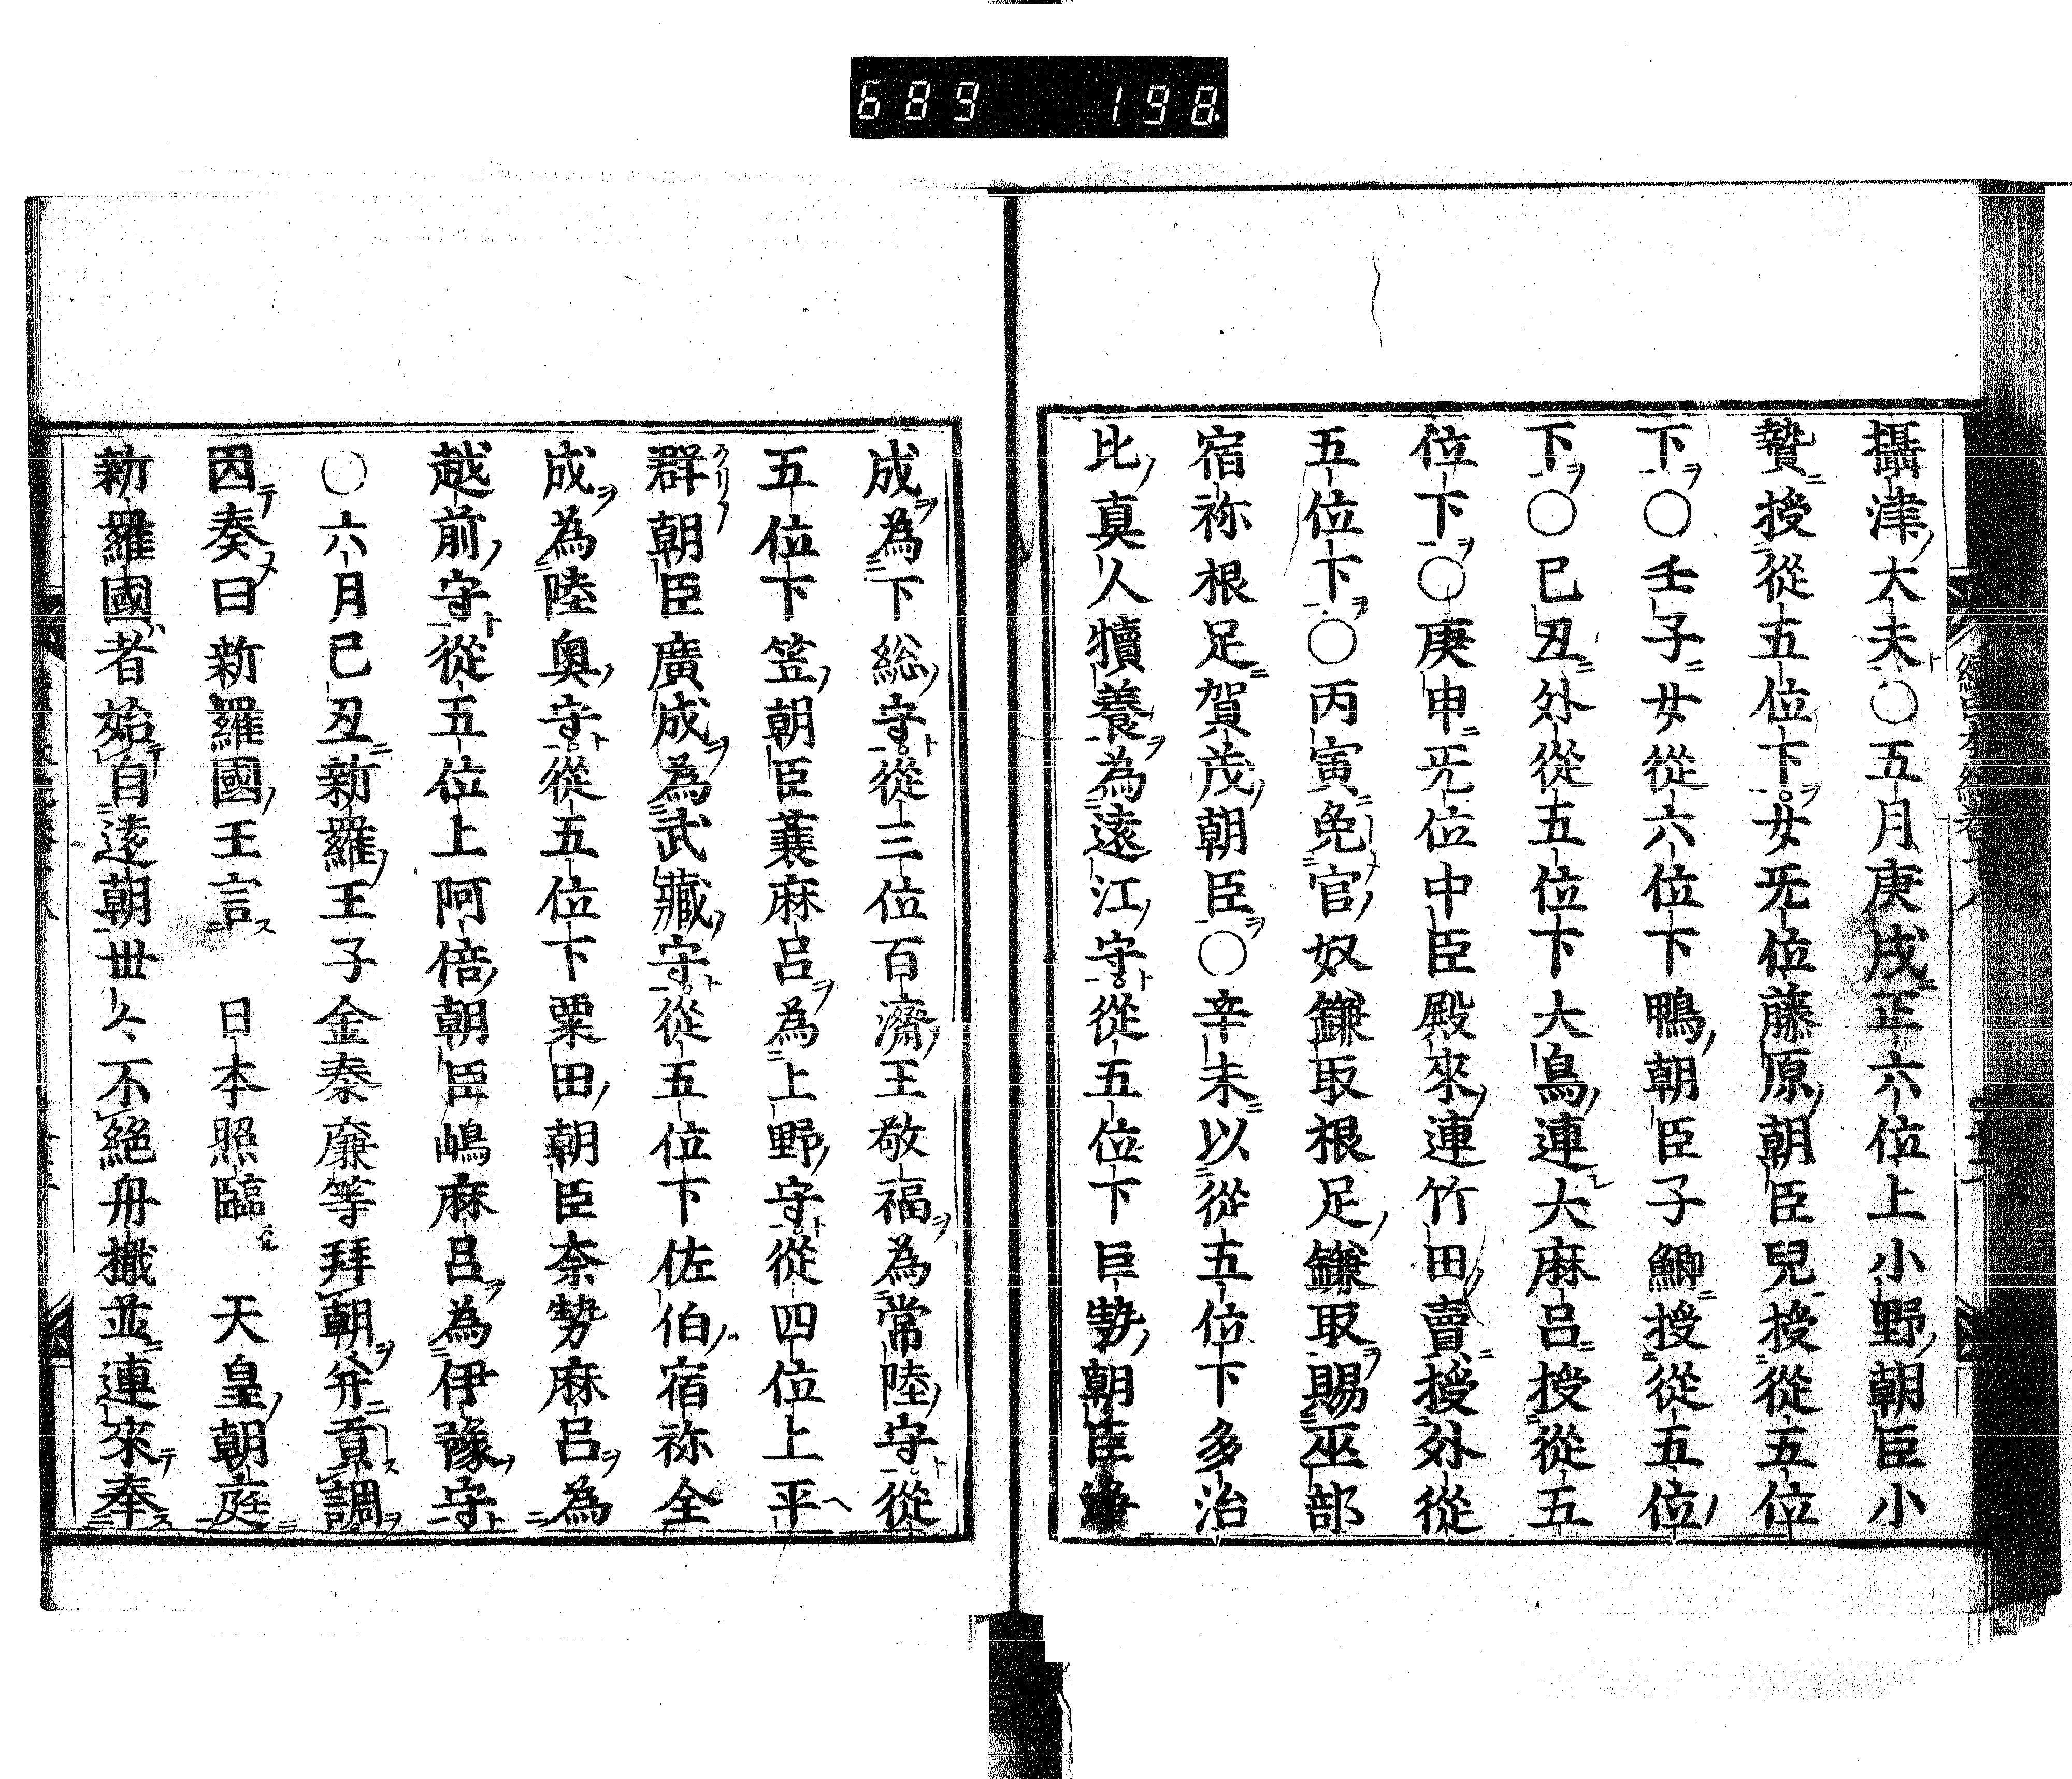 689 198.
攝津大夫○五月庚戌正六位上小野朝臣小
贄授從五位下女旡位藤原朝臣兒授從五位
下○壬子女從六位下鴨朝臣子鯽授從五位
下○己丑外從五位下大鳥連大麻呂授從五
位下○庚申旡位中臣殿來連竹田賣授外從
五位下○丙寅免官奴鎌取根足鎌取賜巫部
宿祢根足賀茂朝臣○辛未以從五位下多治
比真人犢養為遠江守從五位下巨勢朝臣
成為下総守從三位百濟王敬福為常陸守從
五位下笠朝臣蓑麻呂為上野守從四位上平
群朝臣廣成為武藏守從五位下佐伯宿祢全
成為陸奥守從五位下粟田朝臣奈勢麻呂為
越前守從五位上阿倍朝臣嶋麻呂為伊豫守
○六月己丑新羅王子金泰廉等拜朝并貢調
因奏曰新羅國王言 日本照臨 天皇朝庭
新羅國者始自遠朝丗々不絕舟檝並連來奉